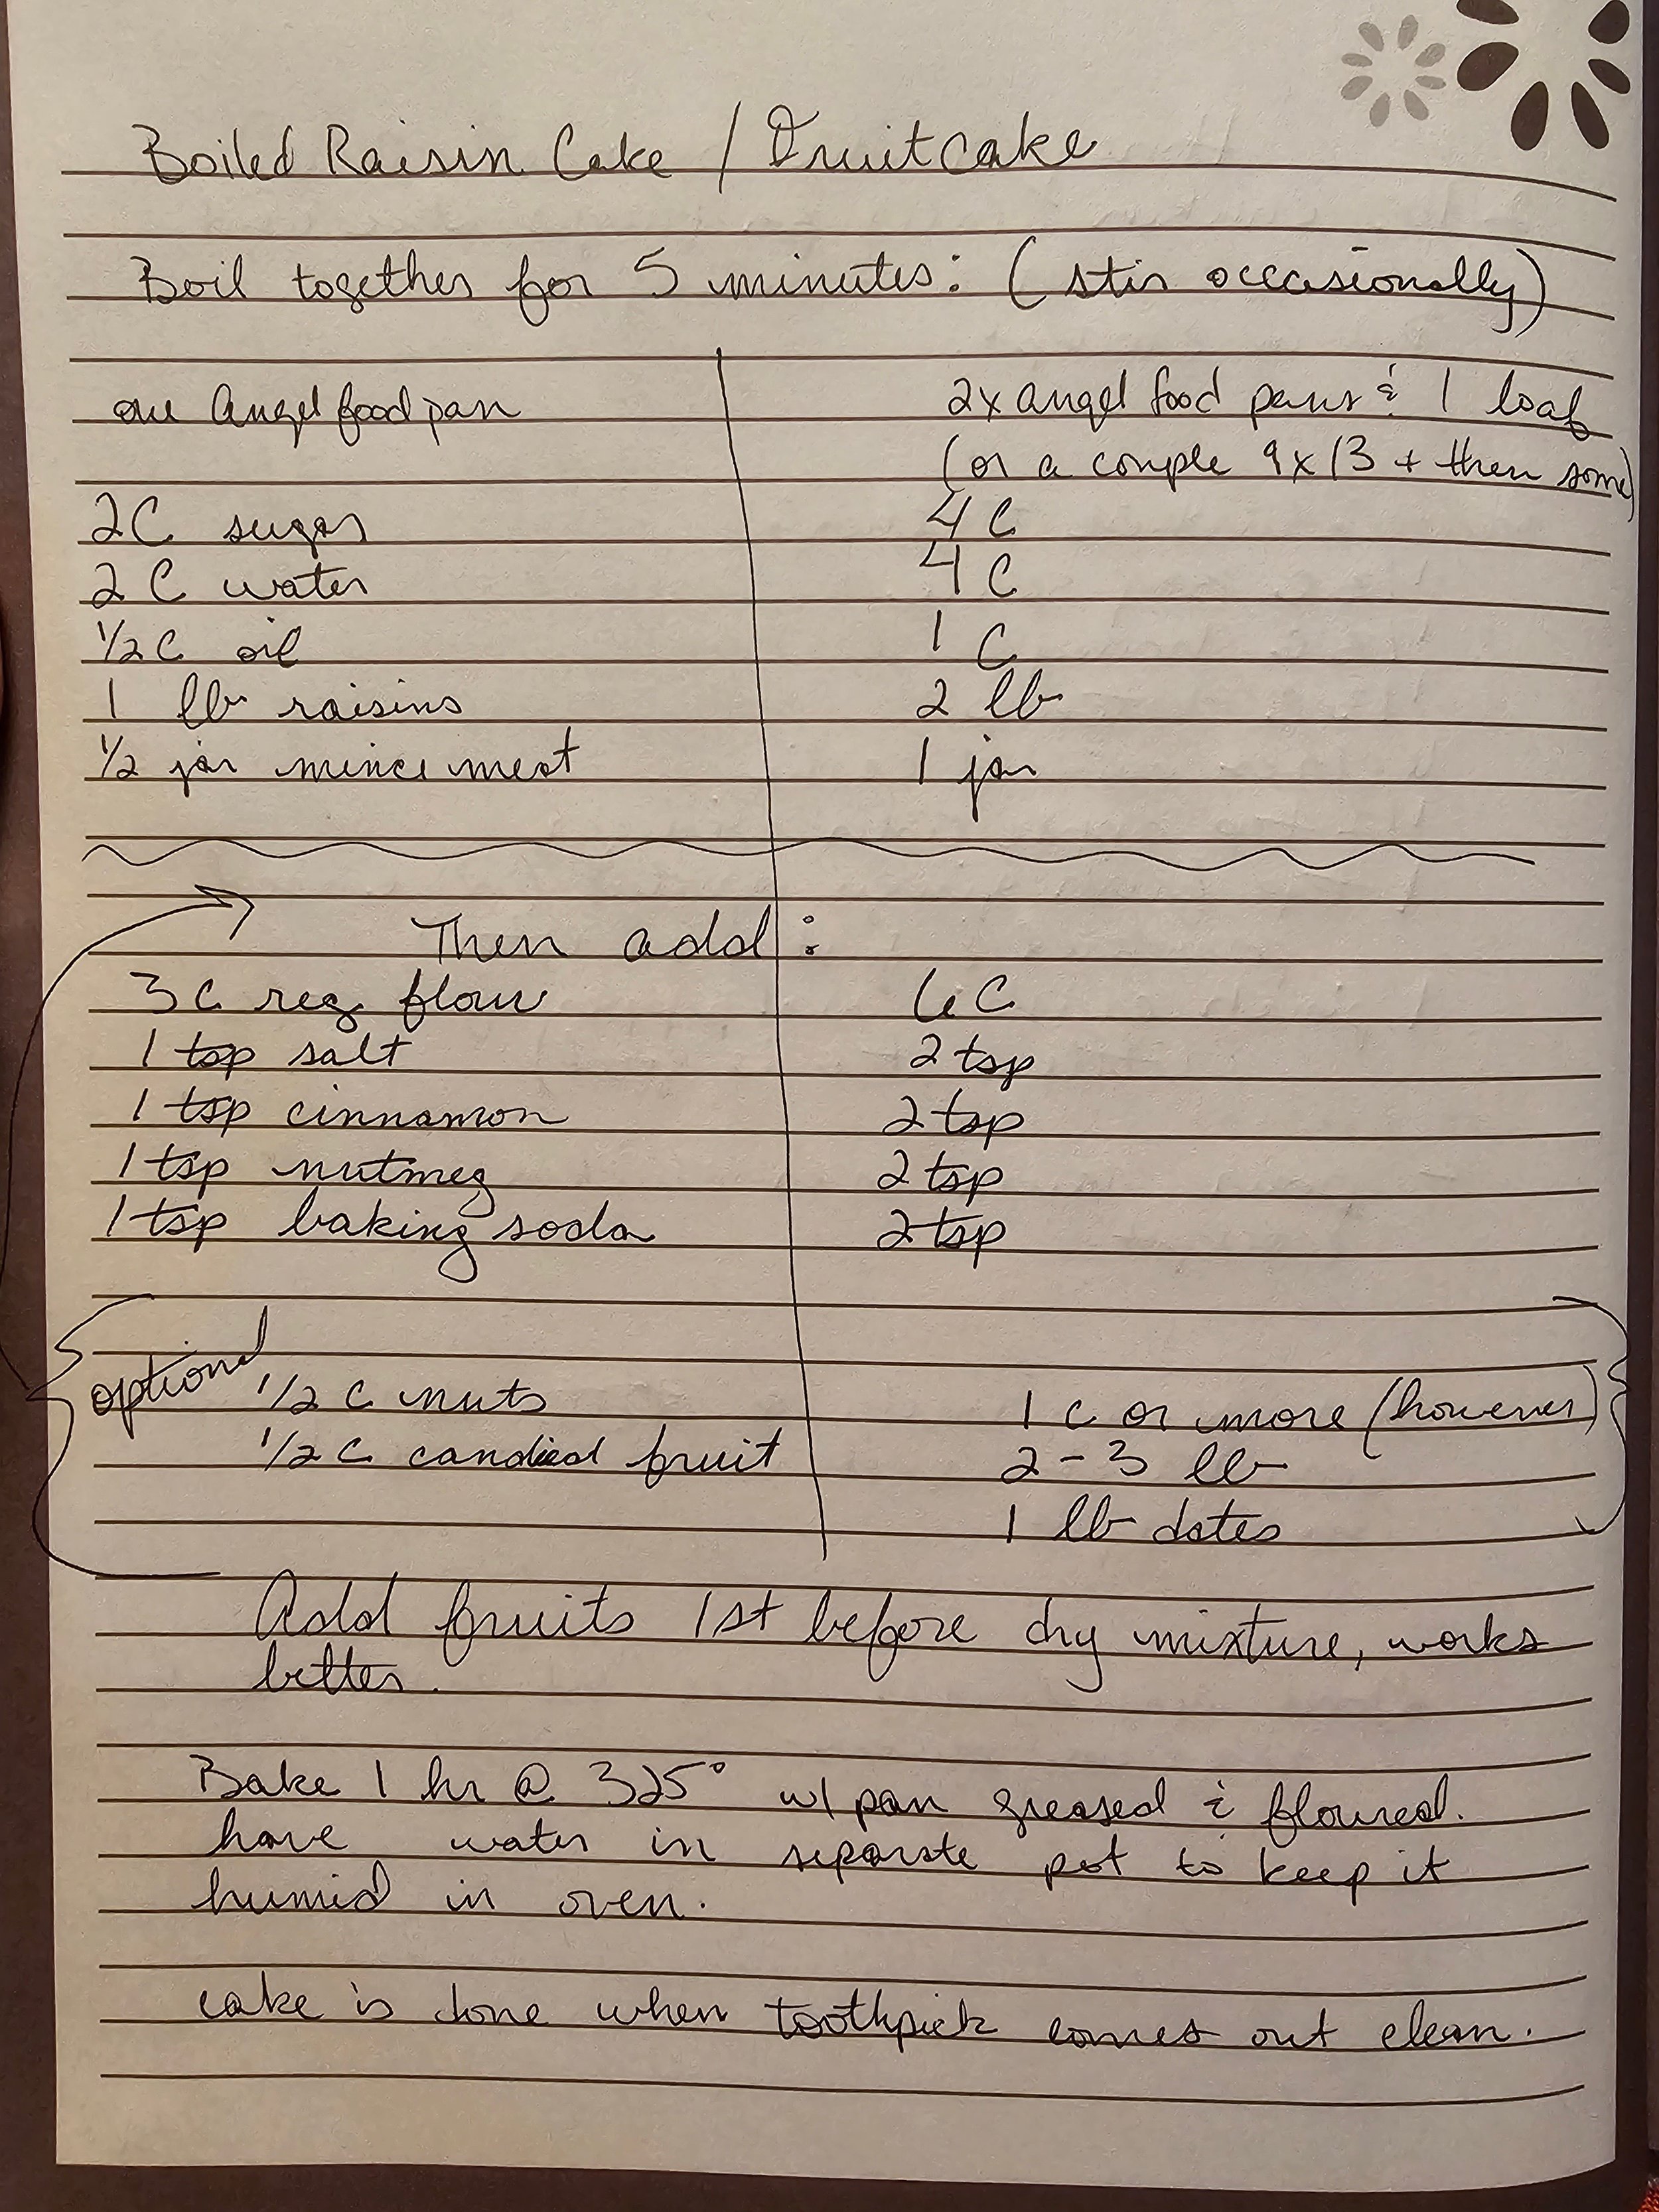 Boiled Raisin Cake / Fruitcake
Boil together for 5 minutes: (stir occasionally)
one Angel food pan 2x angel food pans & 1 loaf
(or a couple 9x13 + then some)
2C sugar 4 C
2 C water 4 C
1/2 C oil 1 C
1 lb raisins 2 lb
1/2 jar mince meat 1 jar
Then add:
3C reg flour 6 C
1 tsp salt 2 tsp
1 tsp cinnamon 2 tsp
1 tsp nutmeg 2 tsp
1 tsp baking soda 2 tsp
optional
1/2 C nuts 1 C or more (however)
1/2 C candied fruit 2-3 lb
1 lb dates
Add fruits 1st before dry mixture, works
better.
Bake 1 hr @ 325° w/ pan greased & floured.
have water in separate pot to keep it
humid in oven.
cake is done when toothpick comes out clean.